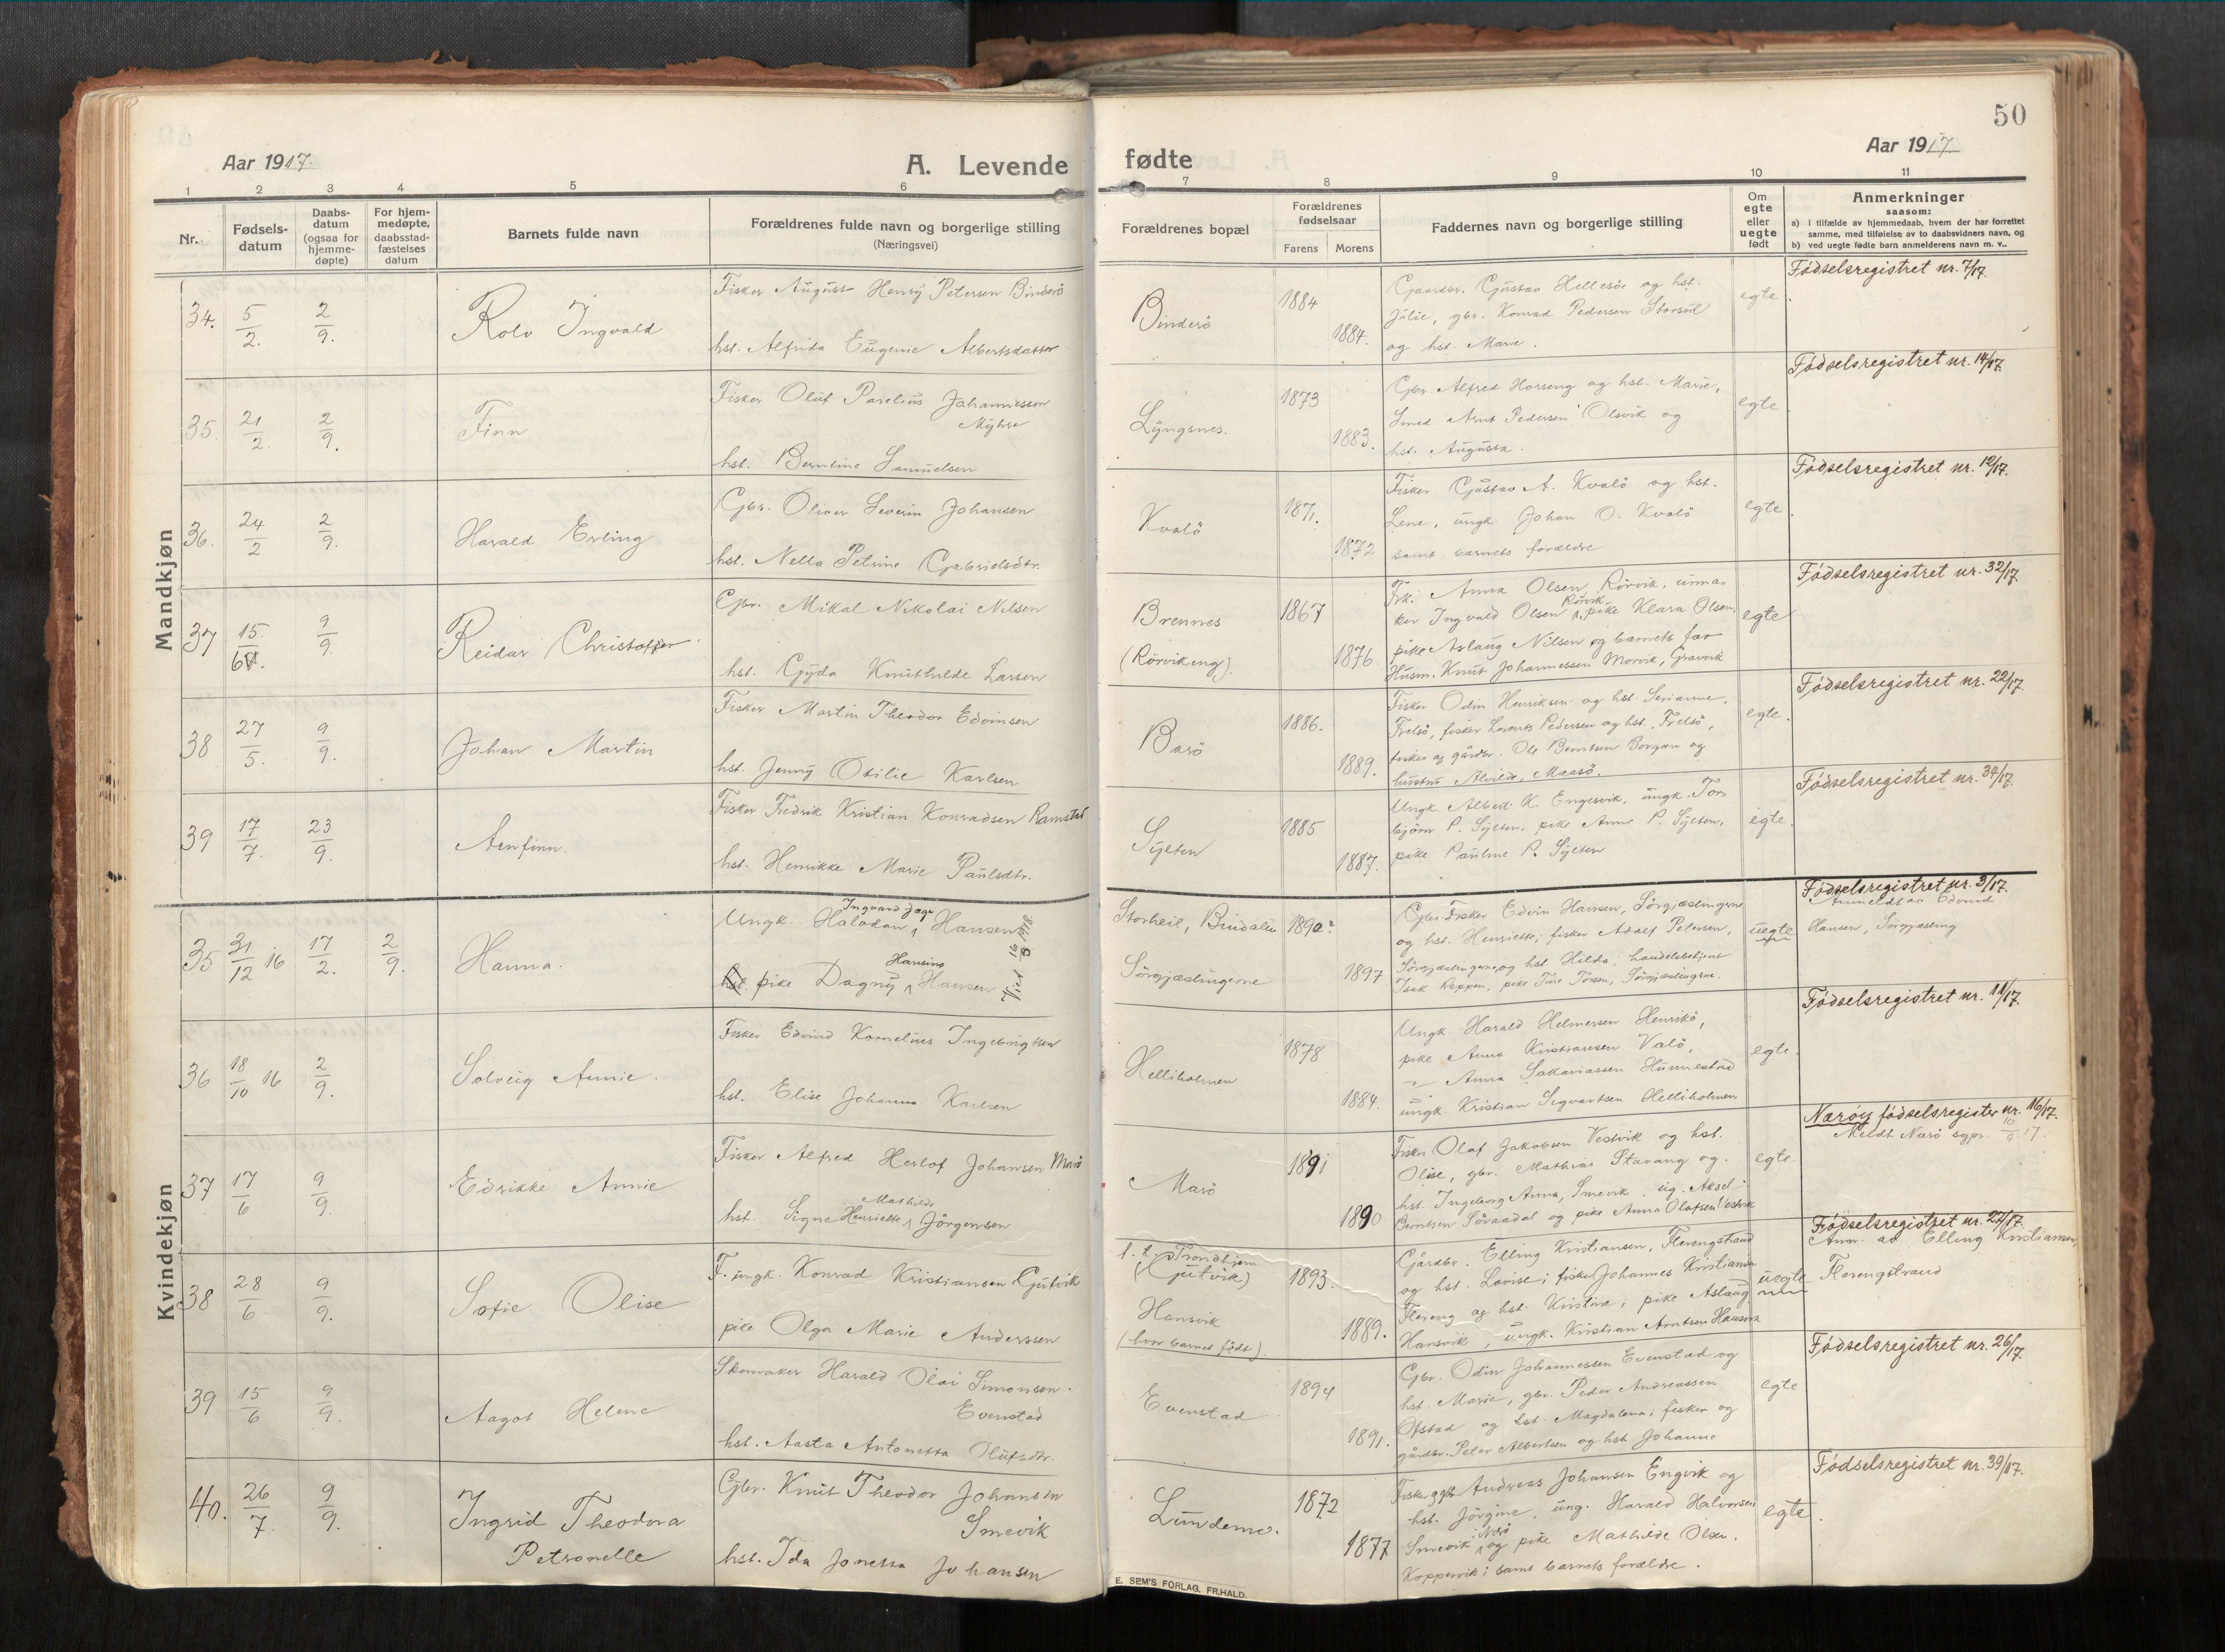 50
Aar 1917.
A. Levende
fødte
Aar 1917
1 2 3 4 5 6
7 8 9 10 11
Nr.
Fødsels-
datum
Daabs-
datum
(ogsaa for
hjemme-
døpte)
For hjem-
medøpte,
daabsstad-
fæstelses
datum
Barnets fulde navn
Forældrenes fulde navn og borgerlige stilling
(Næringsvei)
Forældrenes bopæl
Forældrenes
fødselsaar
Farens Morens
Faddernes navn og borgerlige stilling
Om
egte
eller
uegte
født
Anmerkninger
saasom:
a) i tilfælde av hjemmedaab, hvem der har forrettet
samme, med tilføielse av to daabsvidners navn, og
b) ved uegte fødte barn anmelderens navn m. v..
Mandkjøn
34. 5/2. 2/9. Rolv Ingvald
Fisker August Henry Petersen Binderö
hst. Alfrida Eugenie Albertsdatter
Binderö
1884
1884.
Gaardbr. Gustav Hellesöe og hst.
Julie, gbr. Konrad Pedersen Storsül
og hst. Marie.
egte.
Fødselsregistret nr. 7/17.
35. 21/2. 2/9. Finn
Fisker Oluf Parelius Johannessen
Myhre
hst. Berntine Samuelsen
Lyngsnes.
1873
1883.
Gbr. Alfred Horseng og hst. Marie,
Smed Arnt Pedersen Olsvik og
hst. Augusta.
egte.
Fødselsregistret nr. 14/17.
36. 24/2 2/9. Harald Erling
Gbr. Oliver Severin Johansen
hst. Nella Petrine Gabrielsdtr.
Kvalö
1871.
1872
Fisker Gustav A. Kvalö og hst.
Lene, ungk. Johan O. Kvalö
samt barnets forældre
egte.
Fødselsregistret nr. 12/17.
37 15./6. 9/9. Reidar Christoffer
Gbr. Mikal Nikolai Nilsen
hst. Gyda Knuthilde Larsen
Brennes
(Rörvikeng).
1867
1876.
Frk. Anna Olsen Rörvik, urma-
ker Ingvald Olsen Rörvik, pike Klara Olsen,
pike Aslaug Nilsen og barnets far
Husm. Knut Johannessen Morvik, Gravvik
egte
Fødselsregistret nr. 32/17.
38 27/5. 9/9. Johan Martin
Fisker Martin Theodor Edvinsen
hst. Jenny Otilie Karlsen
Barö
1886.
1889.
Fisker Odin Henriksen og hst. Serianne,
Frelsö, fisker Lorents Pedersen og hst., Frelsö,
fisker og gårdbr. Ole Berntsen Borgan og
hustru Alvilde, Maasö.
egte.
Fødselsregistret nr. 22/17.
39 17/7. 23/9. Arnfinn.
Fisker Fredrik Kristian Konradsen Ramstad
hst. Henrikke Marie Paulsdtr.
Sylten
1885
1887.
Ungk. Albert K. Engesvik, ungk. Tor-
björn P. Sylten, pike Anne P. Sylten,
pike Pauline P. Sylten
egte.
Fødselsregistret nr. 34/17.
Kvindekjøn
35 31/12 16 17/2. 2/9. Hanna.
Ungk. Halvdan Ingvard Jæger Hansen
hst. pike Dagny Hansine Hansen
Viet 16/3 1918
Storheil, Bindalen
Sörgjæslingerne
1890?
1897
Gbr. Fisker Edvin Hansen, Sörgjæslingerne
og hst. Henriette, fisker Adolf Petersen,
Sörgjæslingerne, og hst. Hilda; handelsbetjent
Isak Keppen, pike Tine Torsen, Sörgjæslingerne.
uegte
Fødselsregistret nr. 3/17.
Anmeldt av Edvind
Hansen, Sörgjæsling
36 18/10 16 2/9. Solveig Annie.
Fisker Edvind Kornelius Ingebrigtsen
hst. Elise Johanna Karlsen
Helliholmen
1878
1884.
Ungk Harald Helmersen Henrikö,
pike Anna Kristiansen Valö,
" Anna Sakariassen Hunnestad
ungk. Kristian Sigvartsen Helliholmen
egte.
Fødselsregistret nr. 11/17.
37 17/6 9/9. Edrikke Annie
Fisker Alfred Herlof Johansen Marö
hst. Signe Henriette Mathilde Jörgensen
Marö
1891
1890
Fisker Olaf Jakobsen Vestvik og hst.
Olise, gbr. Mathias Stavang og
hst. Ingeborg Anna, Smevik, ug. Aksel
Berntsen Söraadal og pike Anna Olafsen Vestvik
egte
Nærøy fødselsregister nr. 16/17.
Meldt Nærö sogpr. 10/9 17.
38 28/6 9/9. Sofie Olise
F. ungk. Konrad Kristiansen Gutvik
pike Olga Marie Anderssen
f. t. Trondhjem
(Gutvik)
Hansvik
(hvor barnet född).
1893.
1889.
Gårdbr. Elling Kristiansen, Flerengstrand
og hst. Lovise; fisker Johannes Kristiansen
Flereng og hst. Kristine; pike Aslaug
Hansvik, ungk. Kristian Arntsen Hansvik
uegte
Fødselsregistret nr. 27/17.
Anm. av Elling Kristiansen,
Flerengstrand
39 15/6 9/9. Aagot Helene
Skomaker Harald Olai Simonsen
Evenstad
hst. Aasta Antonetta Olufsdtr.
Evenstad
1894
1891.
Gbr. Odin Johannessen Evenstad og
hst. Marie, gbr. Peder Andreassen
Ofstad og hst. Magdalena; fisker og
gårdbr. Peter Albertsen og hst. Johanne
egte
Fødselsregistret nr. 26/17.
40. 26/7. 9/9. Ingrid Theodora
Petronelle
Gbr. Knut Theodor Johansen
Smevik
hst. Ida Jonetta Johansen
Lundemo.
1872
1877
Fisker og gbr Andreas Johansen Engvik og
hst. Jörgine, ung. Harald Halvorsen
Smevik i Nærö og pike Mathilde Olsen.
Koppervik; samt barnets forældre.
egte.
Fødselsregistret nr. 39/17.
E. SEM'S FORLAG, FR.HALD.